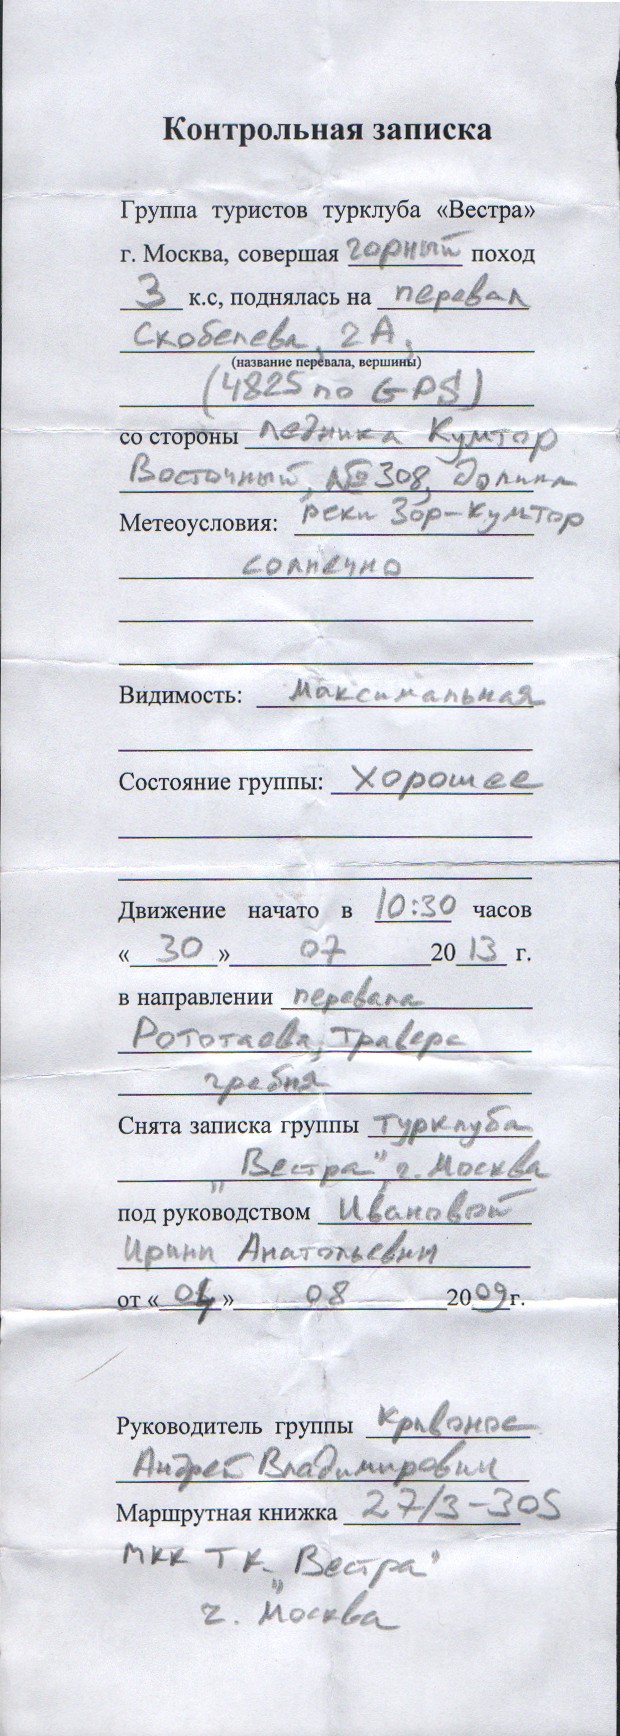 Контрольная записка
Группа туристов турклуба «Вестра»
г. Москва, совершая горный поход
3 к.с, поднялась на перевал
Скобелева, 2А,
(название перевала, вершины)
(4825 по GPS)
со стороны ледника Кумтор
Восточный, №308, долина
Метеоусловия: реки Зор-Кумтор
солнечно
Видимость: максимальная
Состояние группы: хорошее
Движение начато в 10:30 часов
«30» 07 2013 г.
в направлении перевала
Рототаева, траверс
гребня
Снята записка группы турклуба
„Вестра" г. Москва
под руководством Ивановой
Ирины Анатольевны
от «04» 08 2009г.
Руководитель группы Кривонос
Андрей Владимирович
Маршрутная книжка 27/3-305
МКК Т.К. „Вестра"
г. Москва